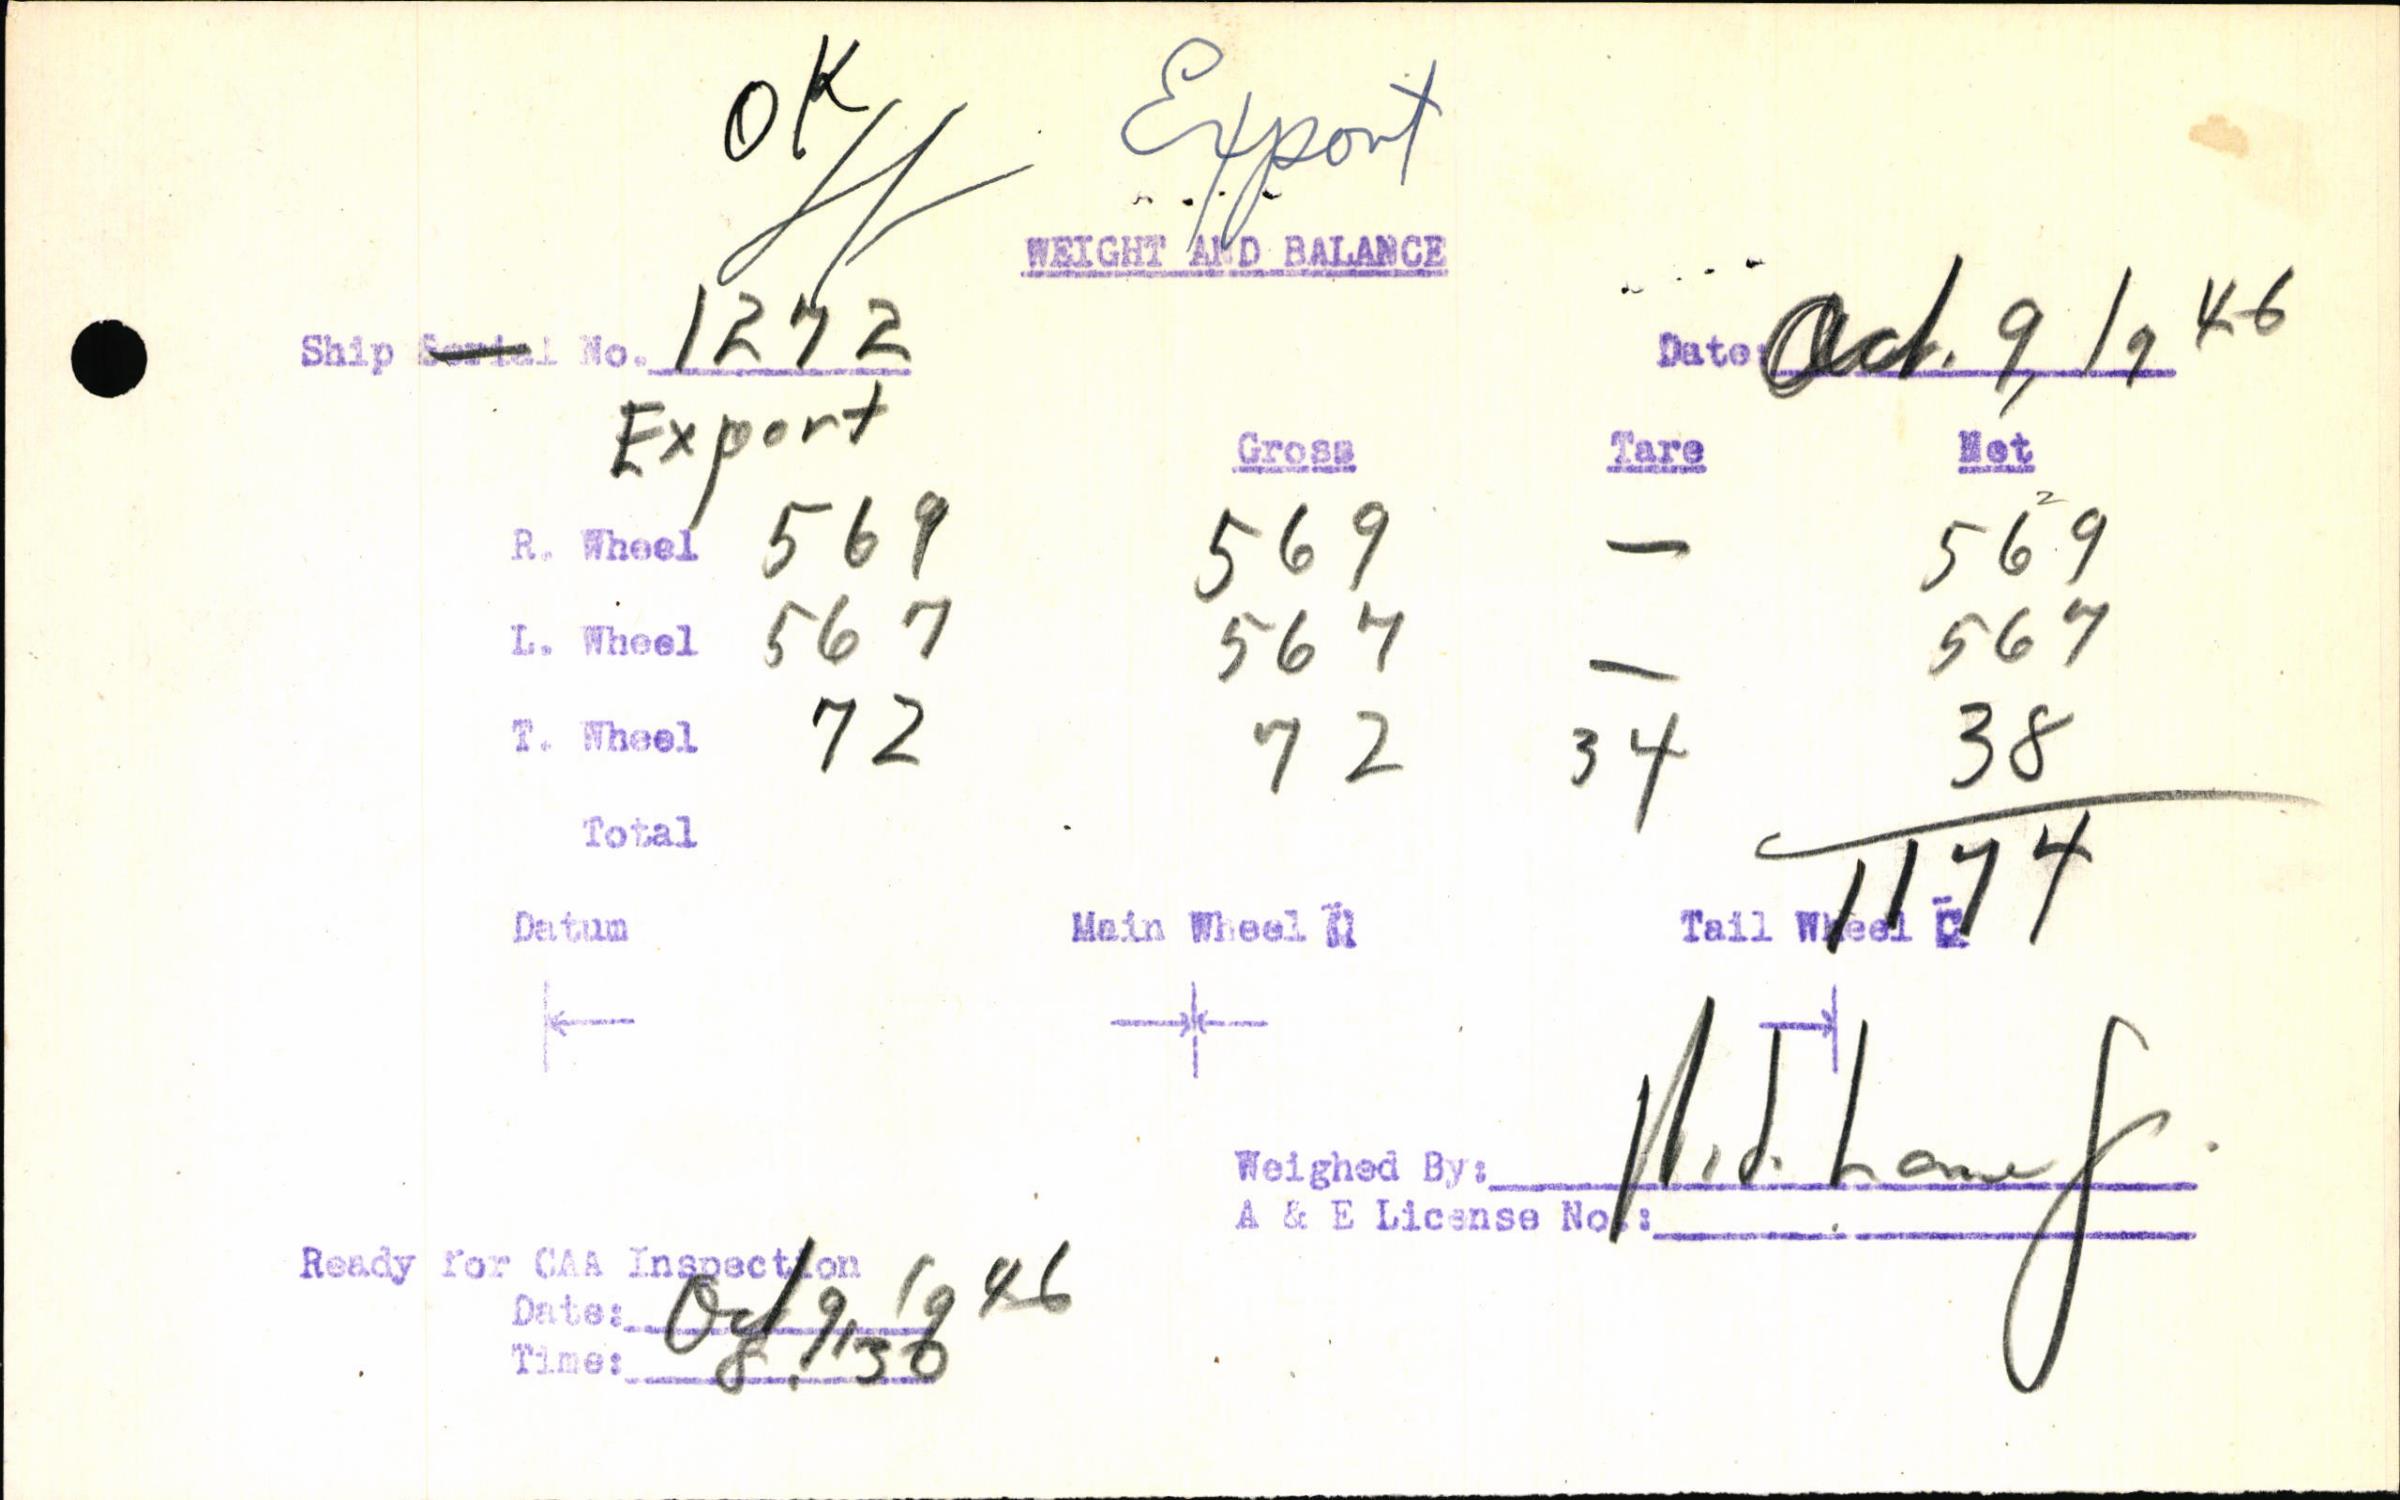 OK Export
WEIGHT AND BALANCE
Ship Serial No. 1272 Date: Oct. 9, 1946
Export
Gross Tare Net
R. Wheel 569 569 — 569
2
L. Wheel 567 567 — 567
T. Wheel 72 72 34 38
Total 1174
Datum Main Wheel Tail Wheel C
Weighed By:
A & E License No.:
Ready for CAA Inspection
Date: Oct 9, 1946
Time: 8:30